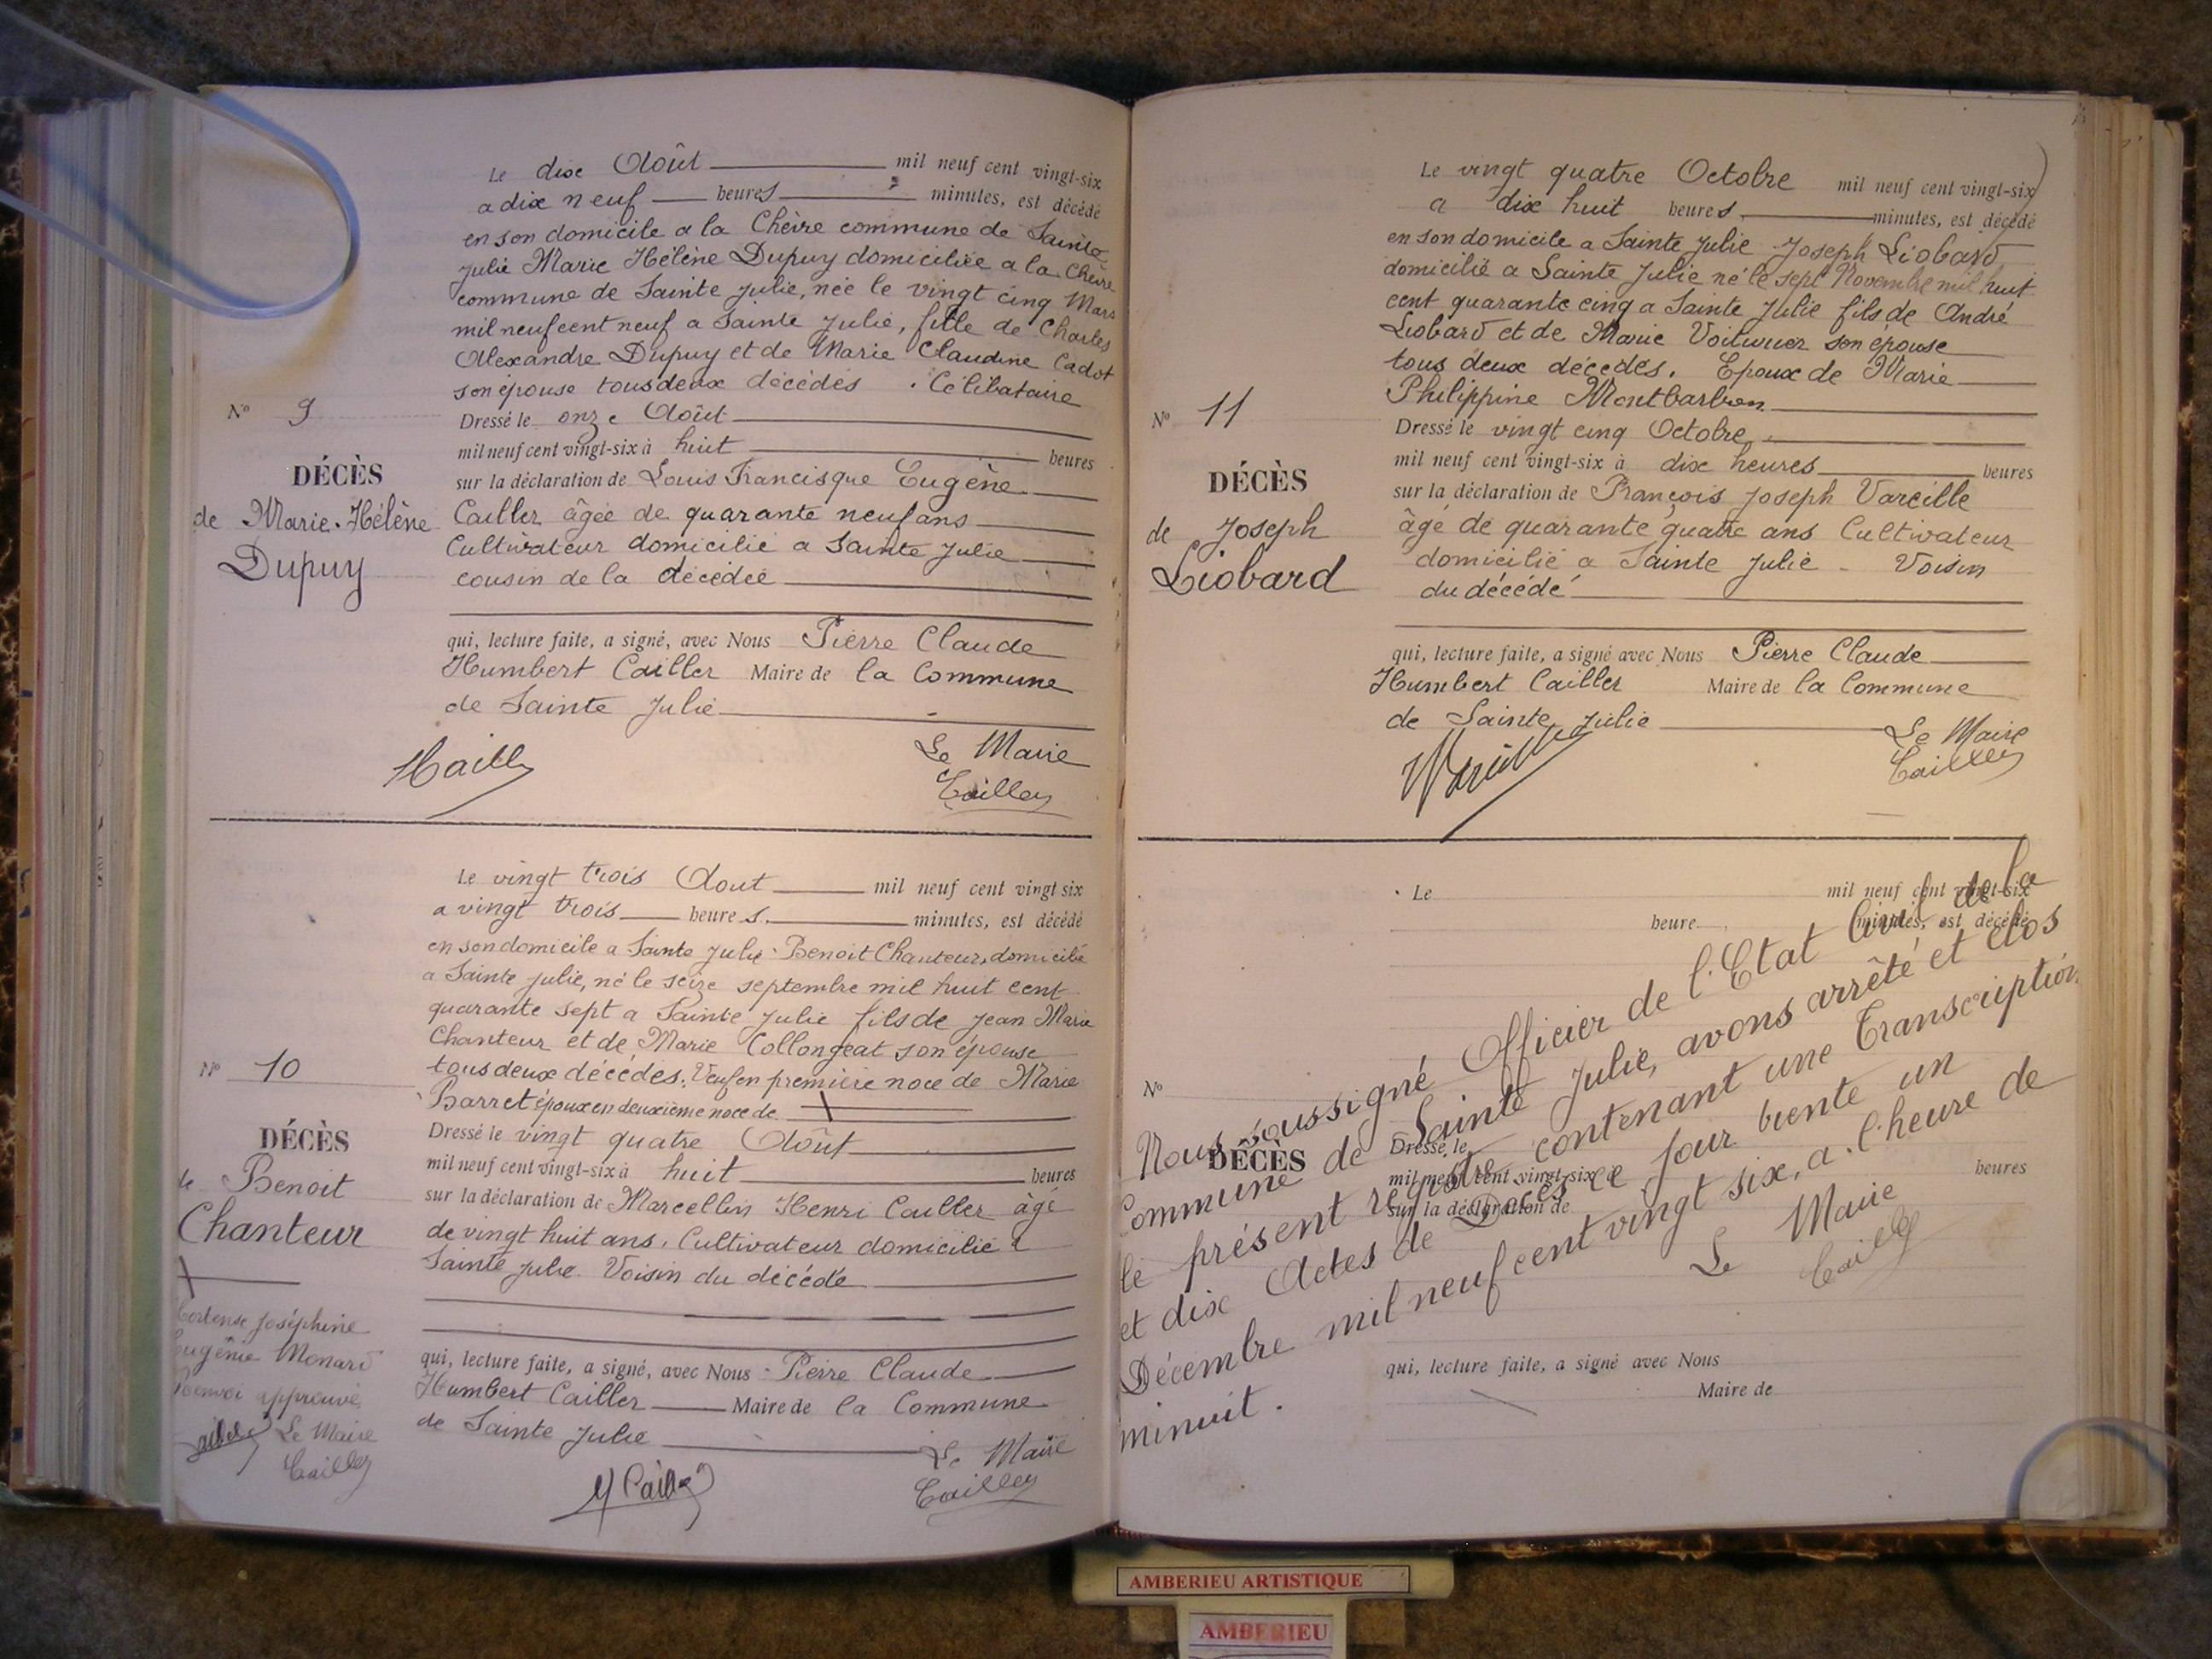 Le dix Août mil neuf cent vingt-six
a dix neuf heures minutes, est décédé
en son domicile a la Chèvre commune de Sainte
Julie Marie Hélène Dupuy domiciliée a la Chèvre
commune de Sainte Julie, née le vingt cinq Mars
mil neuf cent neuf a Sainte Julie, fille de Charles
Alexandre Dupuy et de Marie Claudine Cadot
son épouse tous deux décédés . Célibataire
N° 9
Dressé le onze Août
mil neuf cent vingt-six à huit heures
DÉCÈS
sur la déclaration de Louis Francisque Eugène
de Marie-Hélène
Dupuy
Cailler âgée de quarante neuf ans
Cultivateur domicilié a Sainte Julie
cousin de la décédée
qui, lecture faite, a signé, avec Nous Pierre Claude
Humbert Cailler Maire de la Commune
de Sainte Julie
Le Maire
Cailler
Le vingt trois Aout mil neuf cent vingt six
a vingt trois heures. minutes, est décédé
en son domicile a Sainte Julie Benoit Chanteur, domicilié
a Sainte Julie, né le seize septembre mil huit cent
quarante sept a Sainte Julie fils de Jean Marie
Chanteur et de Marie Collongeat son épouse
tous deux décédés. Veuf en première noce de Marie
Barret époux en deuxième noce de
N° 10
DÉCÈS
de Benoit
Chanteur
Dressé le vingt quatre Août
mil neuf cent vingt-six à huit heures
sur la déclaration de Marcellin Henri Cailler âgé
de vingt huit ans. Cultivateur domicilié a
Sainte Julie. Voisin du décédé
Hortense Joséphine
Eugénie Monard
Renvoi approuvé
Le Maire
Cailler
qui, lecture faite, a signé, avec Nous Pierre Claude
Humbert Cailler Maire de la Commune
de Sainte Julie
Le Maire
Cailler
Le vingt quatre Octobre mil neuf cent vingt-six
a dix huit heures. minutes, est décédé
en son domicile a Sainte Julie Joseph Liobard
domicilié a Sainte Julie né le sept Novembre mil huit
cent quarante cinq a Sainte Julie fils de André
Liobard et de Marie Voiturier son épouse
tous deux décédés. Epoux de Marie
Philippine Montbarbon
N° 11
Dressé le vingt cinq Octobre
mil neuf cent vingt-six à dix heures heures
DÉCÈS
de Joseph
Liobard
sur la déclaration de François Joseph Vareille
âgé de quarante quatre ans Cultivateur
domicilié a Sainte Julie - Voisin
du décédé
qui, lecture faite, a signé avec Nous Pierre Claude
Humbert Cailler Maire de la Commune
de Sainte Julie
Le Maire
Cailler
Le mil neuf cent vingt-six
heure minutes, est décédé
N°
DÉCÈS
Dressé le
mil neuf cent vingt-six à heures
sur la déclaration de
Nous soussigné Officier de l'Etat Civil de la
Commune de Sainte Julie, avons arrêté et clos
le présent registre contenant une Transcription
et dix Actes de Décès ce jour trente un
Décembre mil neuf cent vingt six, a l'heure de
minuit.
Le Maire
Cailler
qui, lecture faite, a signé avec Nous
Maire de
AMBERIEU ARTISTIQUE
AMBERIEU